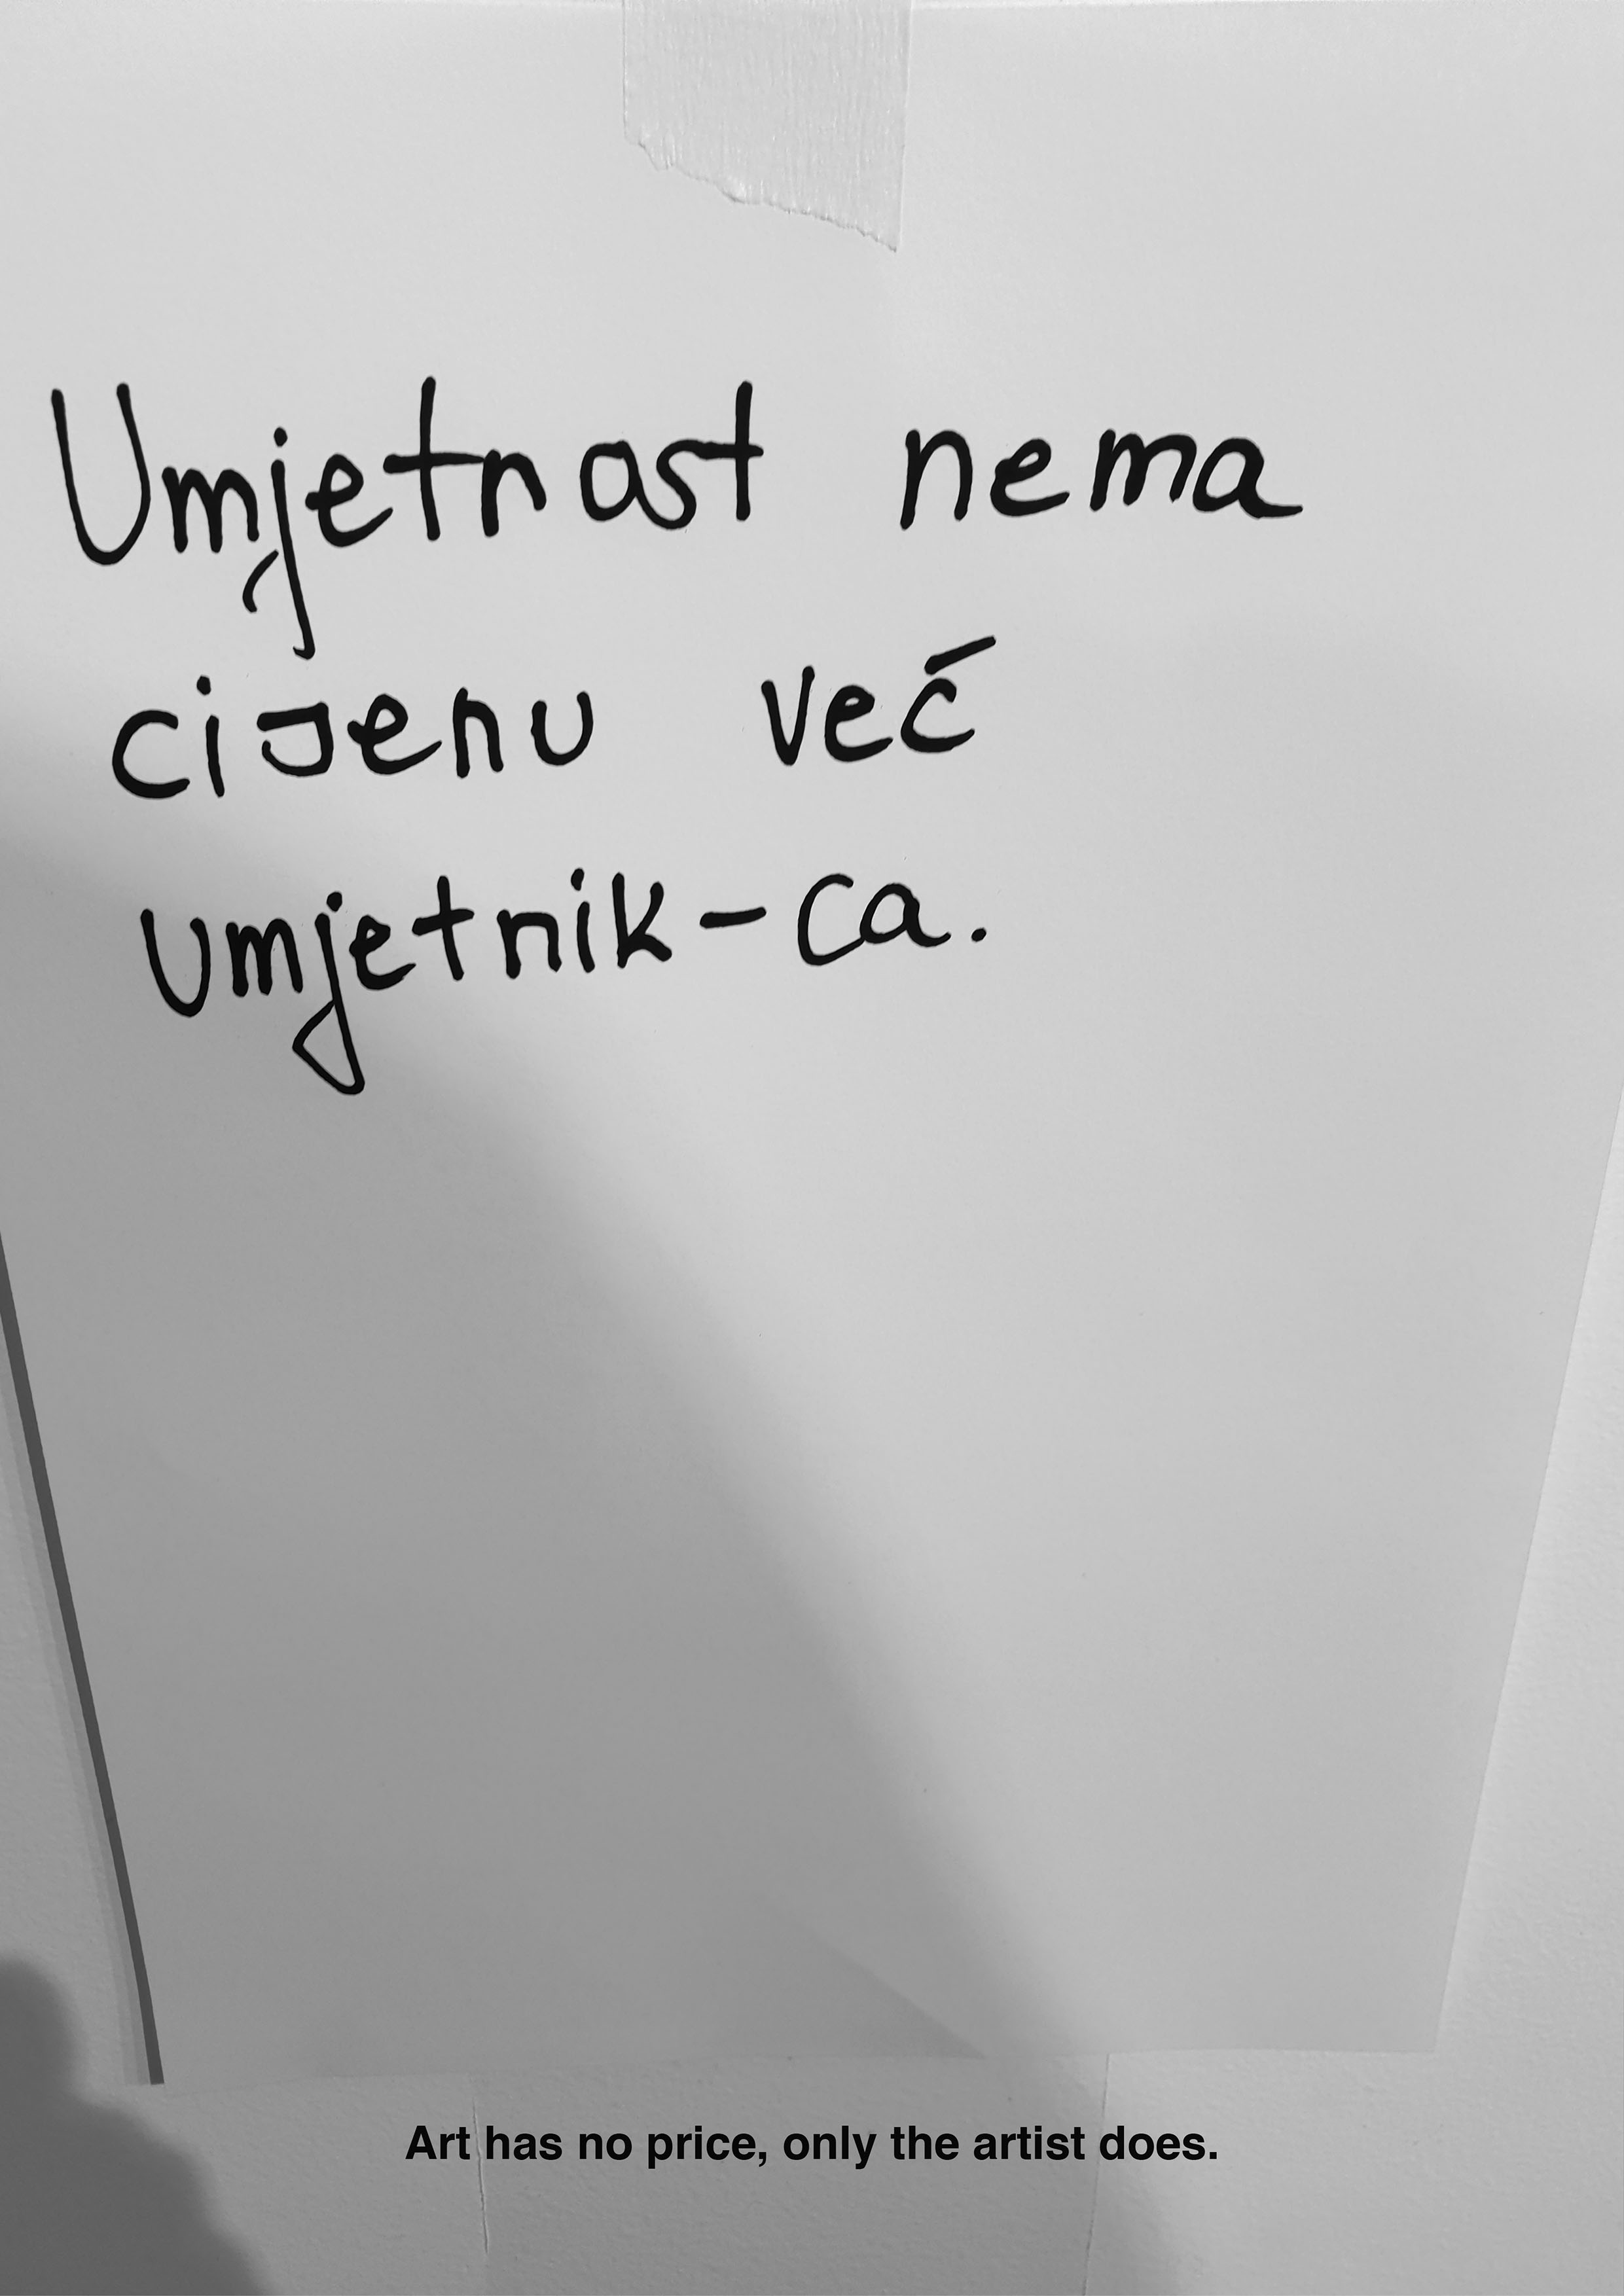 Umjetnost nema
cijenu već
umjetnik-ca.
Art has no price, only the artist does.